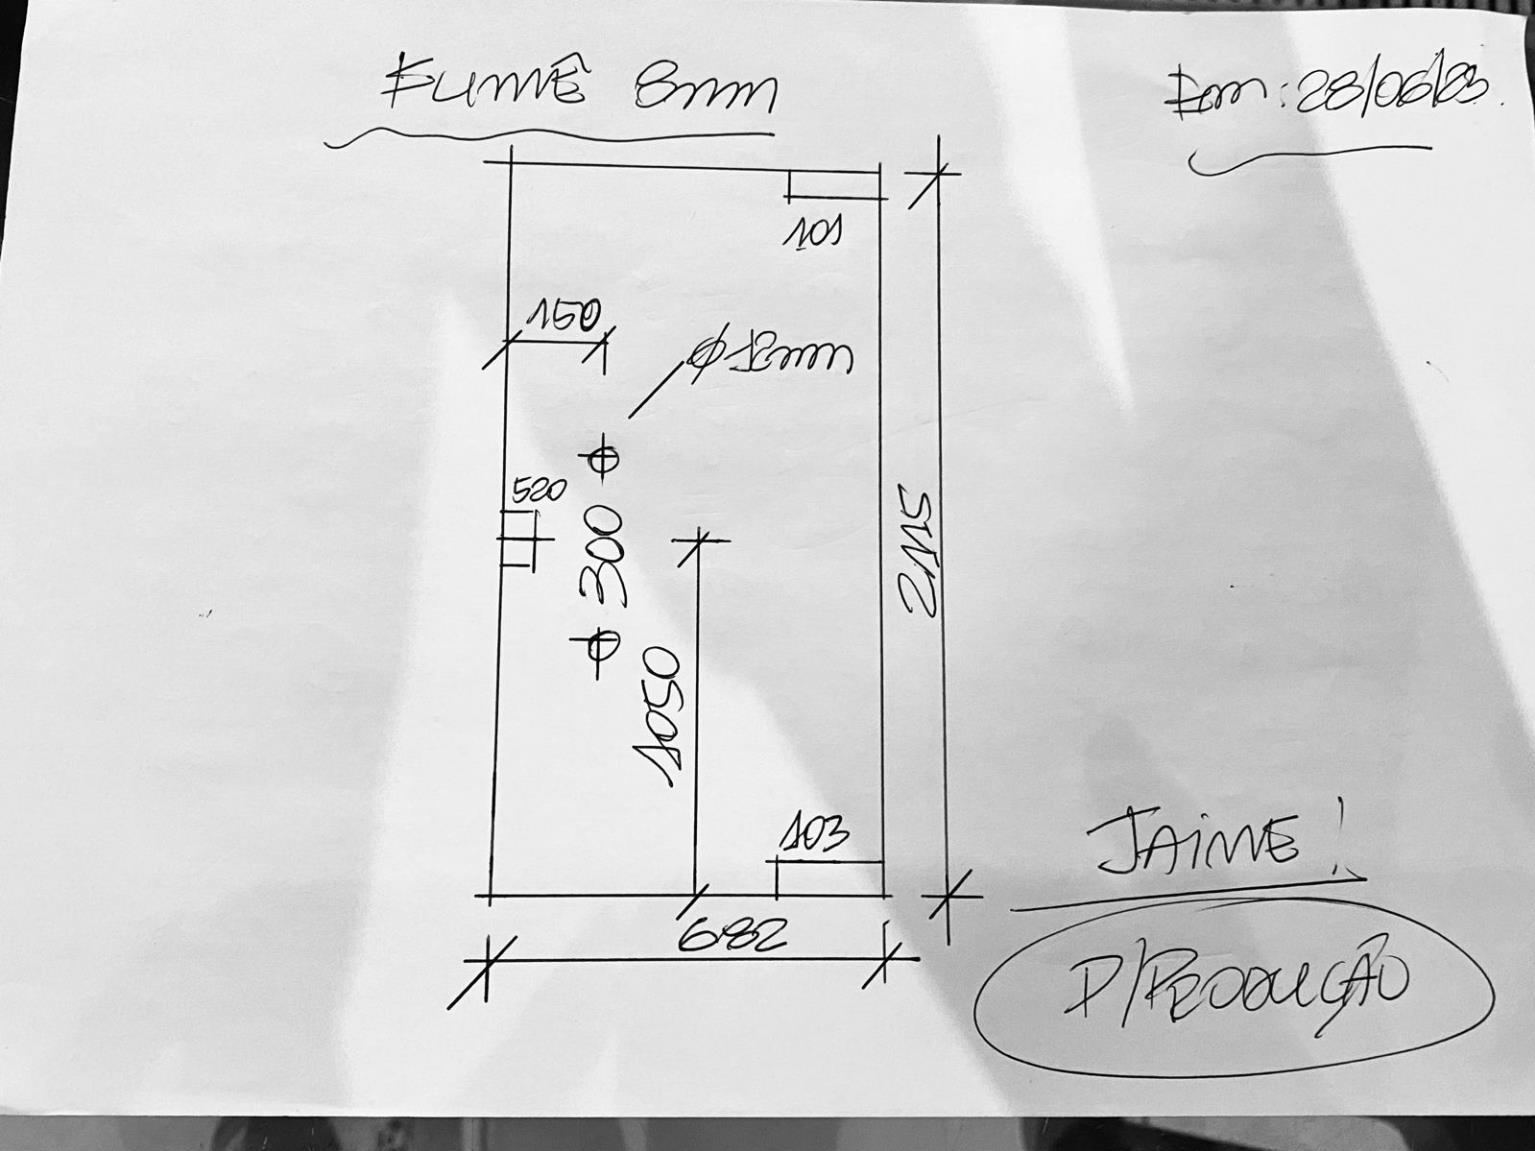 FUMÊ 8mm
Em: 28/06/23.
101
150
φ 12mm
520
300
2115
1050
103
682
JAIME!
P/PRODUÇÃO